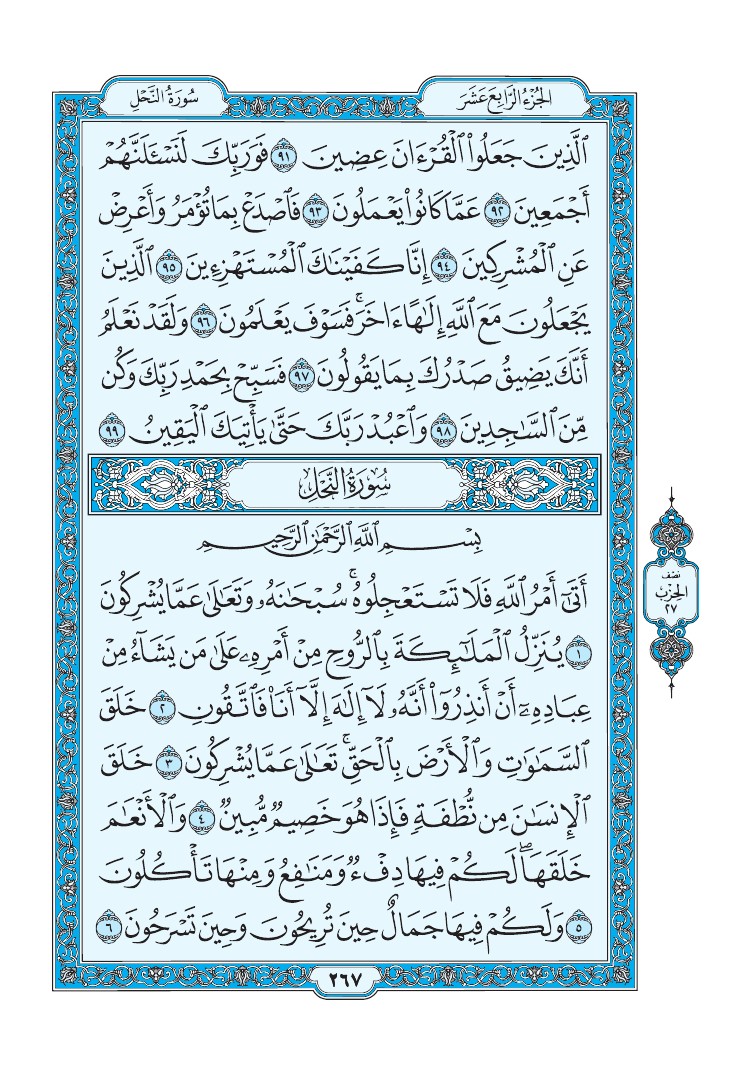 الجُزْءُ الرَّابِعَ عَشَرَ
سُورَةُ النَّحْلِ
ٱلَّذِينَ جَعَلُوا۟ ٱلْقُرْءَانَ عِضِينَ ٩١ فَوَرَبِّكَ لَنَسْـَٔلَنَّهُمْ
أَجْمَعِينَ ٩٢ عَمَّا كَانُوا۟ يَعْمَلُونَ ٩٣ فَٱصْدَعْ بِمَا تُؤْمَرُ وَأَعْرِضْ
عَنِ ٱلْمُشْرِكِينَ ٩٤ إِنَّا كَفَيْنَـٰكَ ٱلْمُسْتَهْزِءِينَ ٩٥ ٱلَّذِينَ
يَجْعَلُونَ مَعَ ٱللَّهِ إِلَـٰهًا ءَاخَرَ ۚ فَسَوْفَ يَعْلَمُونَ ٩٦ وَلَقَدْ نَعْلَمُ
أَنَّكَ يَضِيقُ صَدْرُكَ بِمَا يَقُولُونَ ٩٧ فَسَبِّحْ بِحَمْدِ رَبِّكَ وَكُن
مِّنَ ٱلسَّـٰجِدِينَ ٩٨ وَٱعْبُدْ رَبَّكَ حَتَّىٰ يَأْتِيَكَ ٱلْيَقِينُ ٩٩
سُورَةُ النَّحْلِ
بِسْمِ ٱللَّهِ ٱلرَّحْمَـٰنِ ٱلرَّحِيمِ
أَتَىٰٓ أَمْرُ ٱللَّهِ فَلَا تَسْتَعْجِلُوهُ ۚ سُبْحَـٰنَهُۥ وَتَعَـٰلَىٰ عَمَّا يُشْرِكُونَ
١ يُنَزِّلُ ٱلْمَلَـٰٓئِكَةَ بِٱلرُّوحِ مِنْ أَمْرِهِۦ عَلَىٰ مَن يَشَآءُ مِنْ
عِبَادِهِۦٓ أَنْ أَنذِرُوٓا۟ أَنَّهُۥ لَآ إِلَـٰهَ إِلَّآ أَنَا۠ فَٱتَّقُونِ ٢ خَلَقَ
ٱلسَّمَـٰوَٰتِ وَٱلْأَرْضَ بِٱلْحَقِّ ۚ تَعَـٰلَىٰ عَمَّا يُشْرِكُونَ ٣ خَلَقَ
ٱلْإِنسَـٰنَ مِن نُّطْفَةٍ فَإِذَا هُوَ خَصِيمٌ مُّبِينٌ ٤ وَٱلْأَنْعَـٰمَ
خَلَقَهَا ۗ لَكُمْ فِيهَا دِفْءٌ وَمَنَـٰفِعُ وَمِنْهَا تَأْكُلُونَ
٥ وَلَكُمْ فِيهَا جَمَالٌ حِينَ تُرِيحُونَ وَحِينَ تَسْرَحُونَ ٦
نصْف
الحِزْب
٢٧
٢٦٧